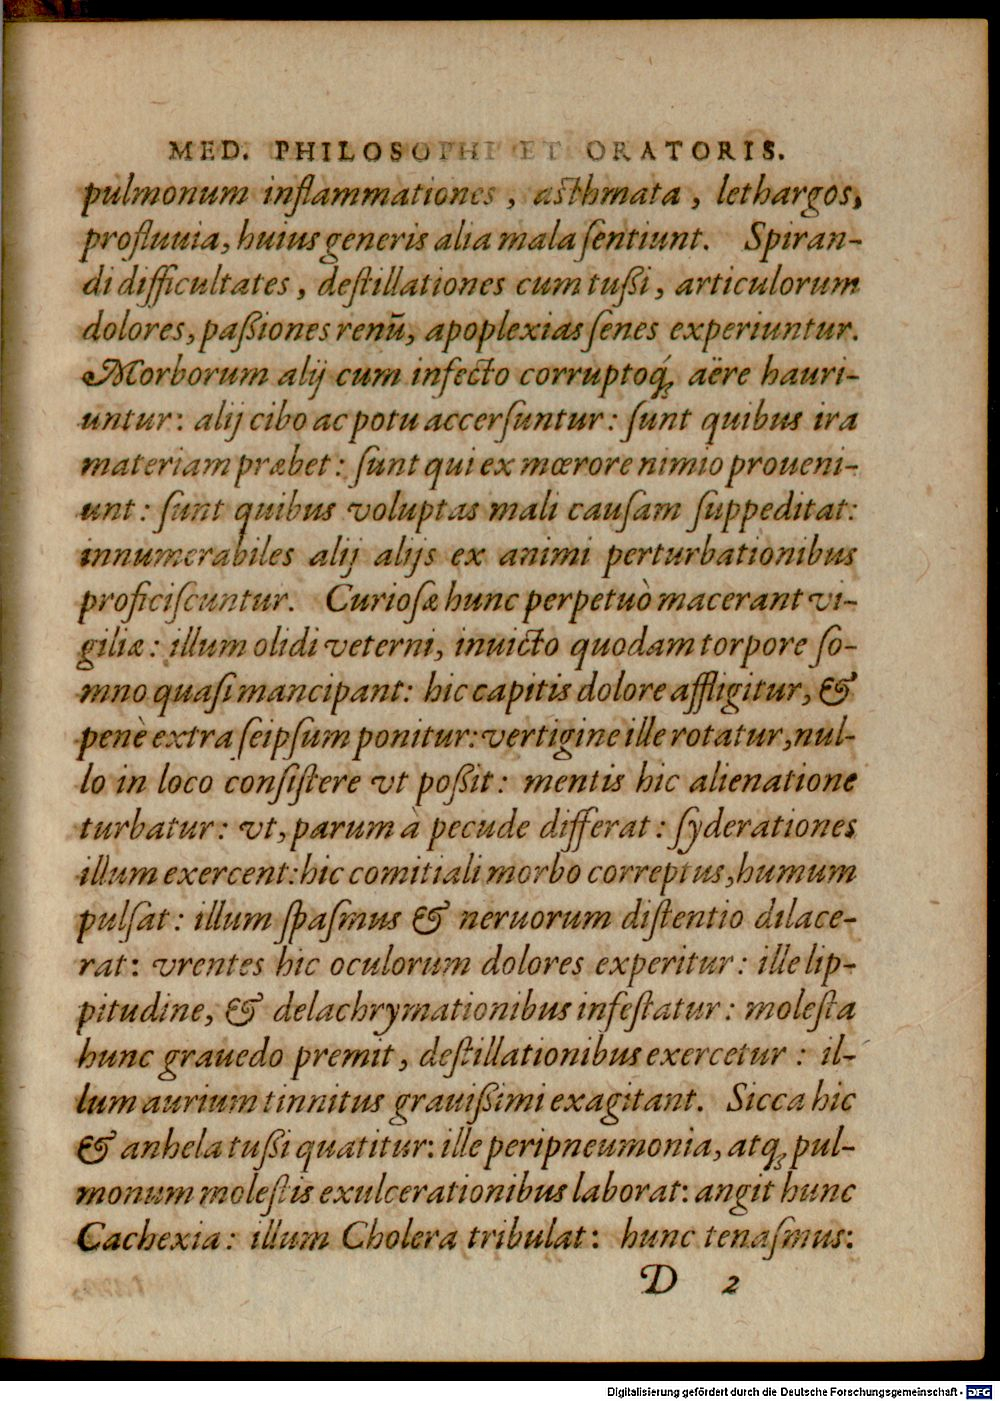 MED. PHILOSOPHI ET ORATORIS.
pulmonum inflammationes, asthmata, lethargos,
profluuia, huius generis alia mala ſentiunt. Spiran-
di difficultates, deſtillationes cum tußi, articulorum
dolores, paßiones renũ, apoplexias ſenes experiuntur.
Morborum alij cum infecto corruptoq́ꝫ aëre hauri-
untur: alij cibo ac potu accerſuntur: ſunt quibus ira
materiam præbet: ſunt qui ex mœrore nimio proueni-
unt: ſunt quibus voluptas mali cauſam ſuppeditat:
innumerabiles alij alijs ex animi perturbationibus
proficiſcuntur. Curioſæ hunc perpetuò macerant vi-
giliæ: illum olidi veterni, inuicto quodam torpore ſo-
mno quaſi mancipant: hic capitis dolore affligitur, &
penè extra ſeipſum ponitur: vertigine ille rotatur, nul-
lo in loco conſiſtere vt poßit: mentis hic alienatione
turbatur: vt, parum à pecude differat: ſyderationes
illum exercent: hic comitiali morbo correptus, humum
pulſat: illum ſpaſmus & neruorum diſtentio dilace-
rat: vrentes hic oculorum dolores experitur: ille lip-
pitudine, & delachrymationibus infeſtatur: moleſta
hunc grauedo premit, deſtillationibus exercetur: il-
lum aurium tinnitus grauißimi exagitant. Sicca hic
& anhela tußi quatitur: ille peripneumonia, atqꝫ pul-
monum moleſtis exulcerationibus laborat: angit hunc
Cachexia: illum Cholera tribulat: hunc tenaſmus:
D 2
Digitalisierung gefördert durch die Deutsche Forschungsgemeinschaft - DFG